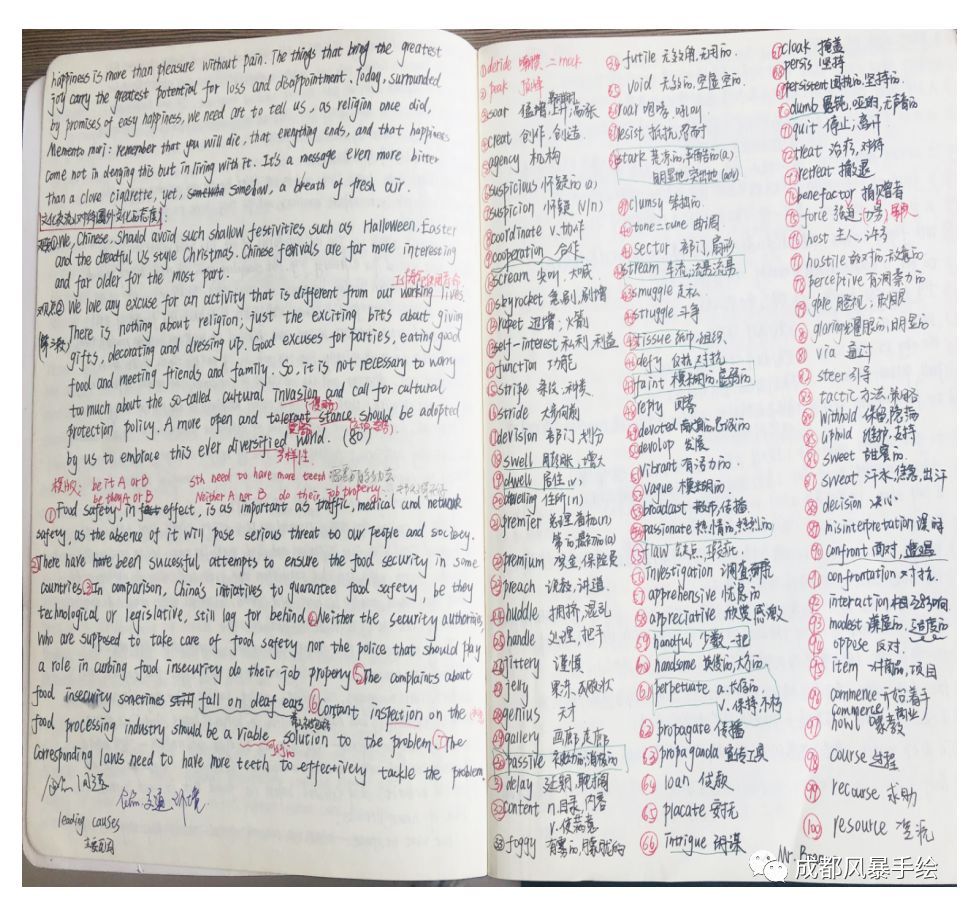 happiness is more than pleasure without pain. The things that bring the greatest
joy carry the greatest potential for loss and disappointment. Today, surrounded
by promises of easy happiness, we need art to tell us, as religion once did,
Memento mori: remember that you will die, that everything ends, and that happiness
come not in denying this but in living with it. It's a message even more bitter
than a clove cigarette, yet, somehow, a breath of fresh air.
We, Chinese, should avoid such shallow festivities such as Halloween, Easter
and the dreadful US style Christmas. Chinese festivals are far more interesting
and far older for the most part.
We love any excuse for an activity that is different from our working lives.
There is nothing about religion; just the exciting bits about giving
gifts, decorating and dressing up. Good excuses for parties, eating good
food and meeting friends and family. So, it is not necessary to worry
too much about the so-called cultural invasion and call for cultural
protection policy. A more open and tolerant stance should be adopted
by us to embrace this ever diversified world. (80)
多样性
模版: be it A or B sth need to have more teeth
be they A or B Neither A nor B do their job properly.
①Food safety, in effect, is as important as traffic, medical and network
safety, as the absence of it will pose serious threat to our people and society.
②There have been successful attempts to ensure the food security in some
countries.③In comparison, China's intiatives to guarantee food safety, be they
technological or legislative, still lag far behind.④Neither the security authorities,
who are supposed to take care of food safety nor the police that should play
a role in curbing food insecurity do their job properly.⑤The complaints about
food insecurity sometimes fall on deaf ears.⑥Contant inspection on the
food processing industry should be a viable solution to the problem.⑦The
corresponding laws need to have more teeth to effectively tackle the problem.
leading causes
主要原因
①deride 嘲笑 = mock
②peak 顶峰
③soar 猛增,上升,高涨
④creat 创作,创造
⑤agency 机构
⑥suspicious 怀疑的(a)
⑦suspicion 怀疑(v/n)
⑧coordinate v.协作
⑨cooperation 合作
⑩scream 尖叫,大喊
⑪skyrocket 急剧,剧增
⑫迅增;火箭
⑬self-interest 私利,利益
⑭function 功能
⑮stripe 条纹,种类
⑯stride 大步向前
⑰devision 部门,划分
⑱swell 膨胀,增大
⑲dwell 居住(v)
⑳dwelling 住所(n)
㉑premier 总理,首相(n)
㉒premium 奖金,保险费
㉓preach 说教,讲道
㉔huddle 拥挤,混乱
㉕handle 处理,把手
㉗jittery 谨慎
jelly 果冻,胶状
genius 天才
㉙gallery 画廊,走廊
㉚passive 被动的,消极的
㉛delay 延期,耽搁
㉜content n.目录,内容
v.使满意
㉝foggy 有雾的,朦胧的
㉞futile 无效的,无用的.
㉟void 无效的,空虚的.
roar 咆哮,吼叫
resist 抵抗,忍耐
stark
明显地,突出地(adv)
㊴clumsy 笨拙的.
㊵tone=tune 曲调.
㊶sector 部门,扇形
stream 车流,流星,流焉
㊸smuggle 走私
㊹struggle 斗争
㊺tissue 组织
㊻defy 反抗,对抗
faint 模糊的,虚弱的
reply 回答
devoted
devolop 发展
vibrant 有活力的.
vague 模糊的.
broadcast 散布,传播
passionate 热情的,热烈的
flaw 缺点,瑕疵.
investigation 调查研究
apprehensive 忧虑的
appreciative 欣赏,感激
handful 少数,一把
handsome 英俊的,大方的
perpetuate a.长存的,
v.保持,不朽
㊷propagate 传播
63 propaganda 宣传工具
64 loan 贷款
65 placate 安抚
66 intrigue 阴谋
67 cloak 掩盖
68 persis 坚持
persistent 固执的,坚持的.
dumb 愚钝,哑的,无声的
71 quit 停止;离开
72 treat 治疗,对待
retreat 撤退
benefactor 捐赠者
75 force 强迫
76 host 主人,许多
77 hostile 敌对的,敌意的
78 perceptive 有洞察力的
glaring 耀眼的,明显的
81 via 通过
82 steer 引导
83 tactic 方法,策略
84 withold 保留,隐藏
85 uphold 维护,支持
86 sweet 甜蜜的.
87 sweat 汗水,焦急,出汗
88 decision 决心
misinterpretation 误解
90 confront 面对,遭遇
91 confrontation 对抗.
92 interaction 相互影响
93 modest 谦虚的,适度的
94 oppose 反对.
95 item 一对商品,项目
96 commence 开始,着手
commerce 商业
97 howl 嚎叫
98 course 过程
99 recourse 求助
100 resource 资源
成都风暴手绘